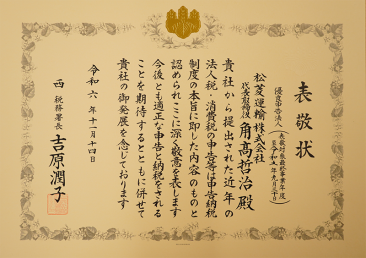 表敬状
優良申告法人
松菱運輸株式会社
代表取締役 角高哲治 殿
貴社から提出された近年の
法人税・消費税の申告等は申告納税
制度の本旨に即した内容のものと
認められここに深く敬意を表します
今後とも適正な申告と納税をされる
ことを期待するとともに併せて
貴社の御発展を念じております
令和六年十一月十四日
西税務署長 吉原潤子